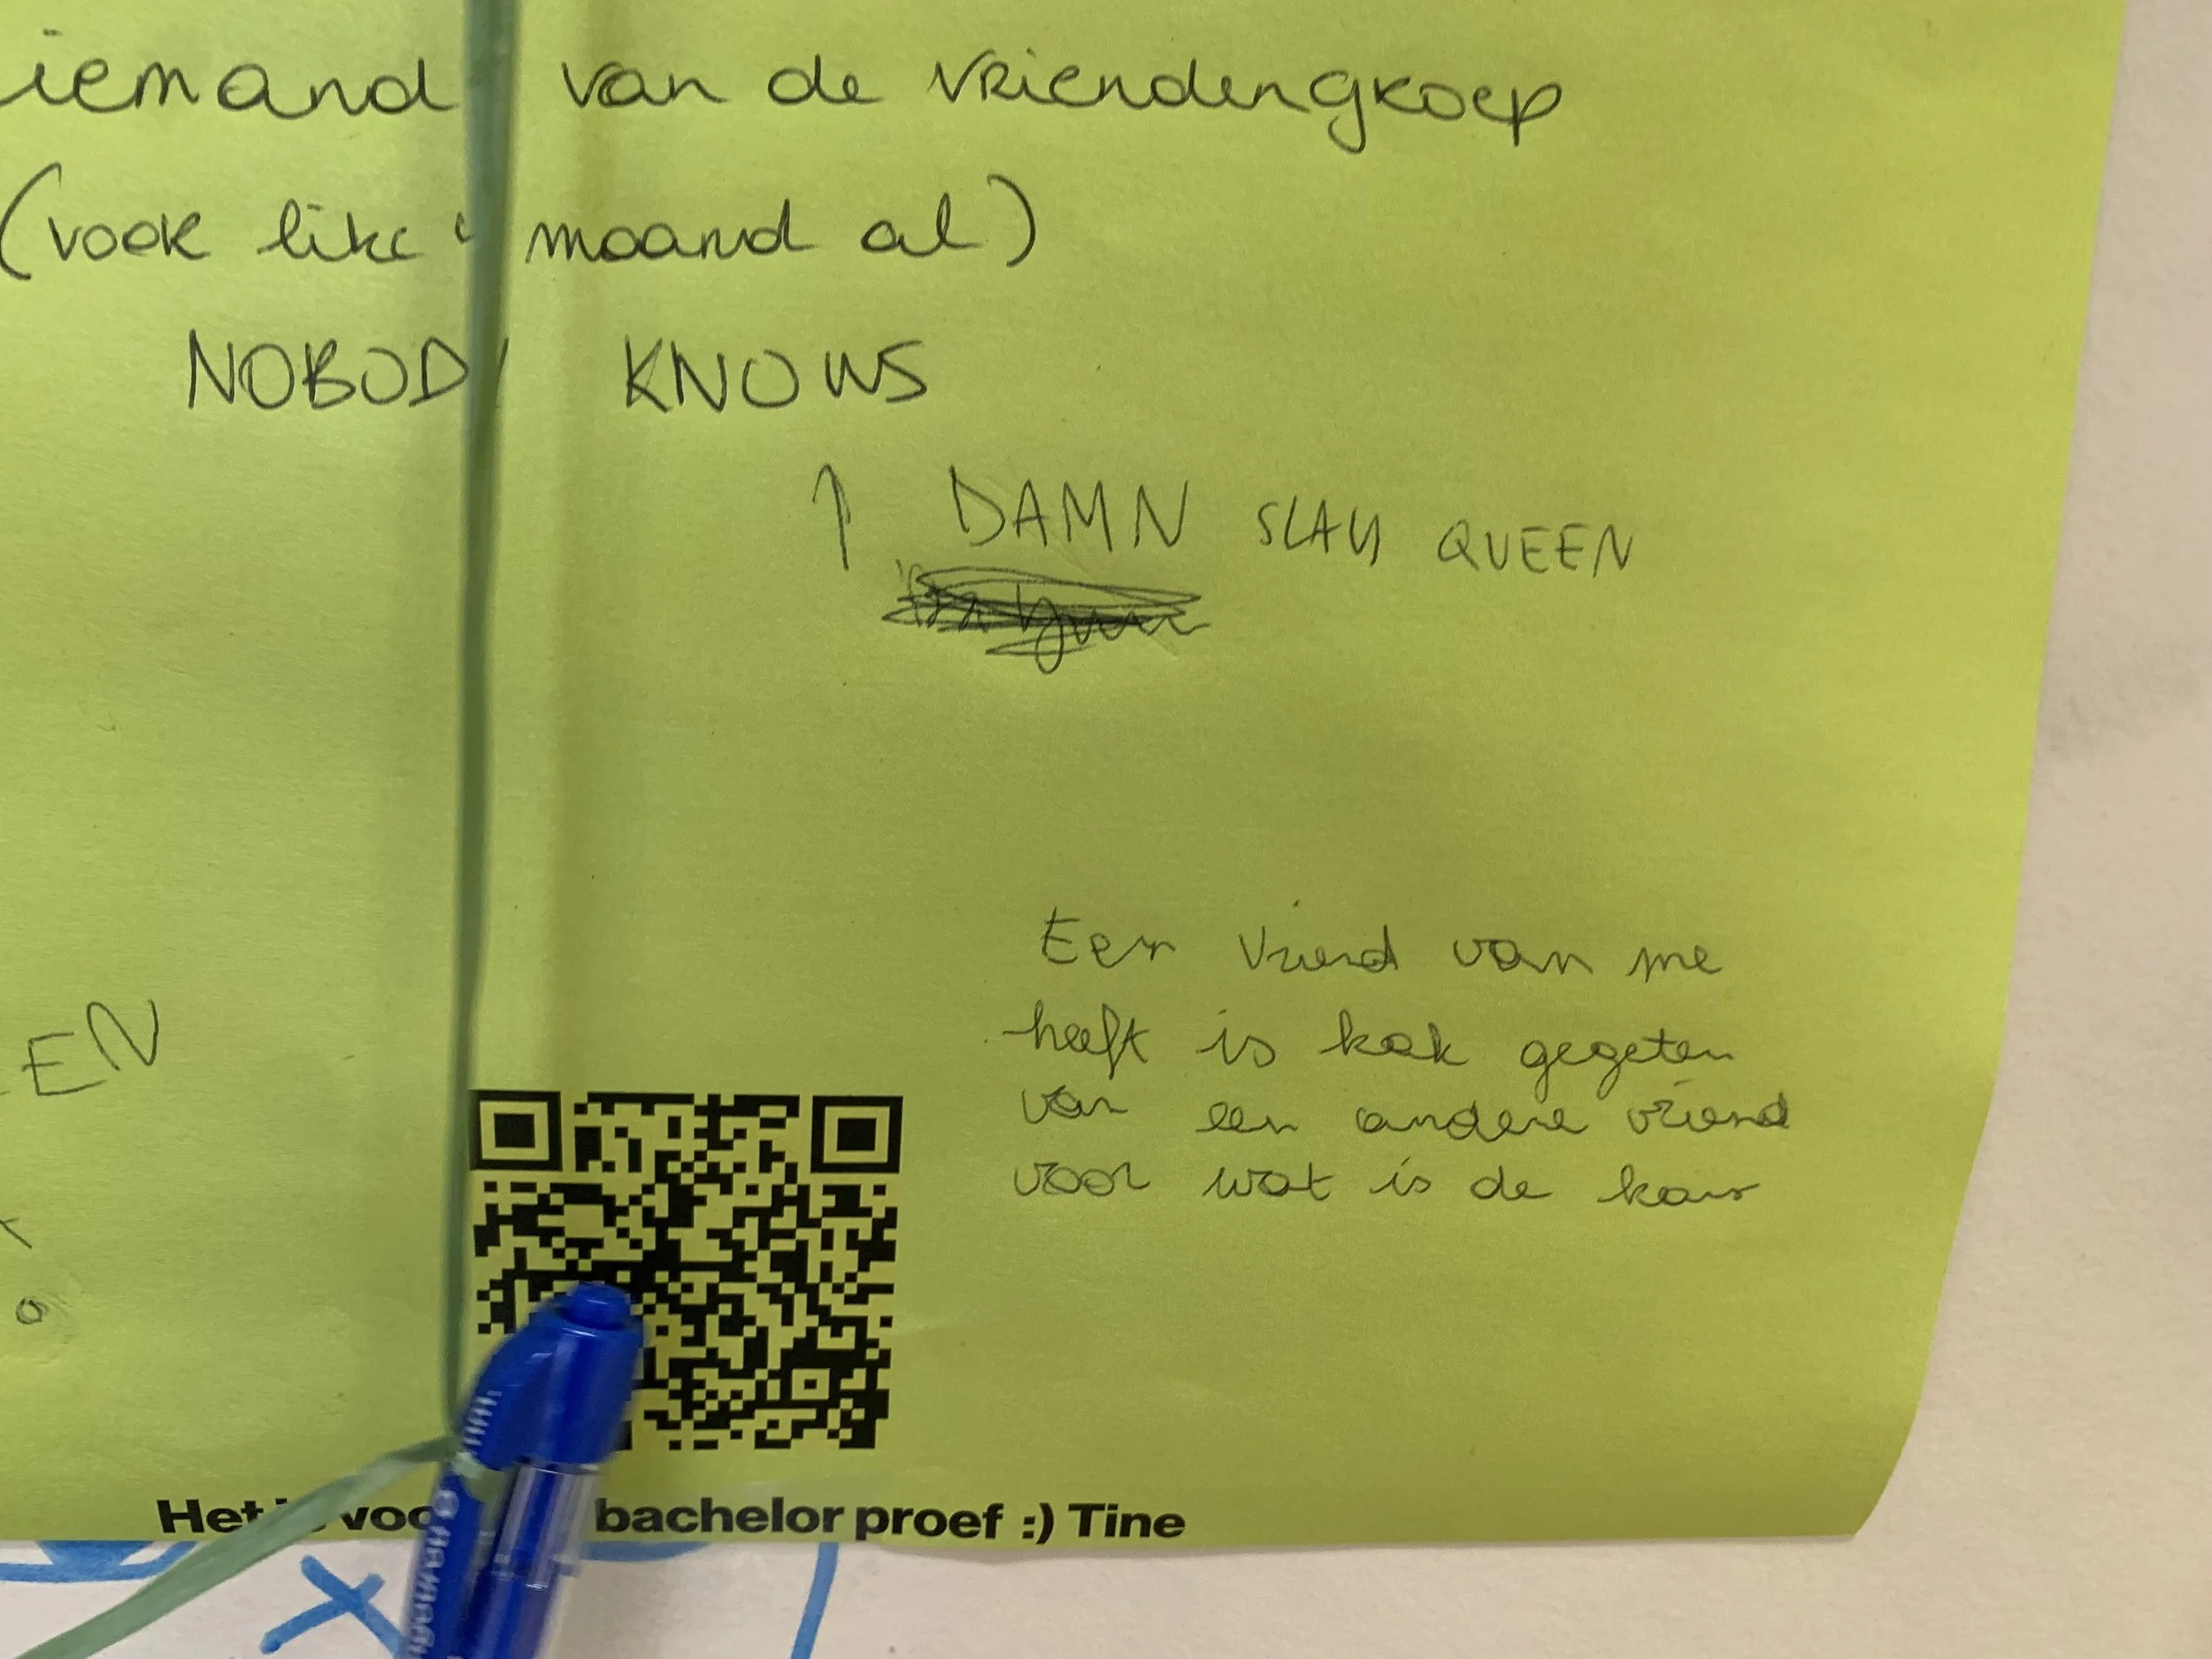 iemand van de vriendengroep
(voor like maand al)
NOBODY KNOWS
↑ DAMN SLAY QUEEN
Een vriend van me
heeft is kak gegeten
van een andere vriend
voor wat is de kans
EEN
Het is voor bachelor proef :) Tine